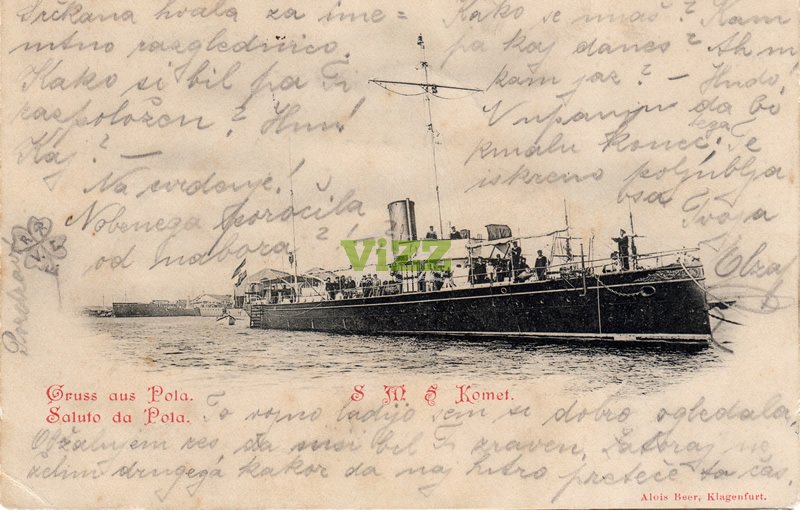 Srčkana hvala za ime =
nitno razglednico.
Kako si bil pa Ti
razpoložen? Hm!
Kaj? —
Na svidenje!
Nobenega sporočila
od nabora?!
Kako se imaš? Kam
pa kaj danes? Ah m
kam jaz? — Hudo!
V upanju da bo
kmalu konec tega Te
iskreno poljublja
vsa Tvoja
Elza
Pozdravi
ViZZ
Gruss aus Pola.
Saluto da Pola.
S M S Komet.
To vojno ladijo sem si dobro ogledala.
Obžalujem res da nisi bil Ti zraven. Zatoraj ne
želim drugega kakor da naj hitro preteče ta čas.
Alois Beer, Klagenfurt.